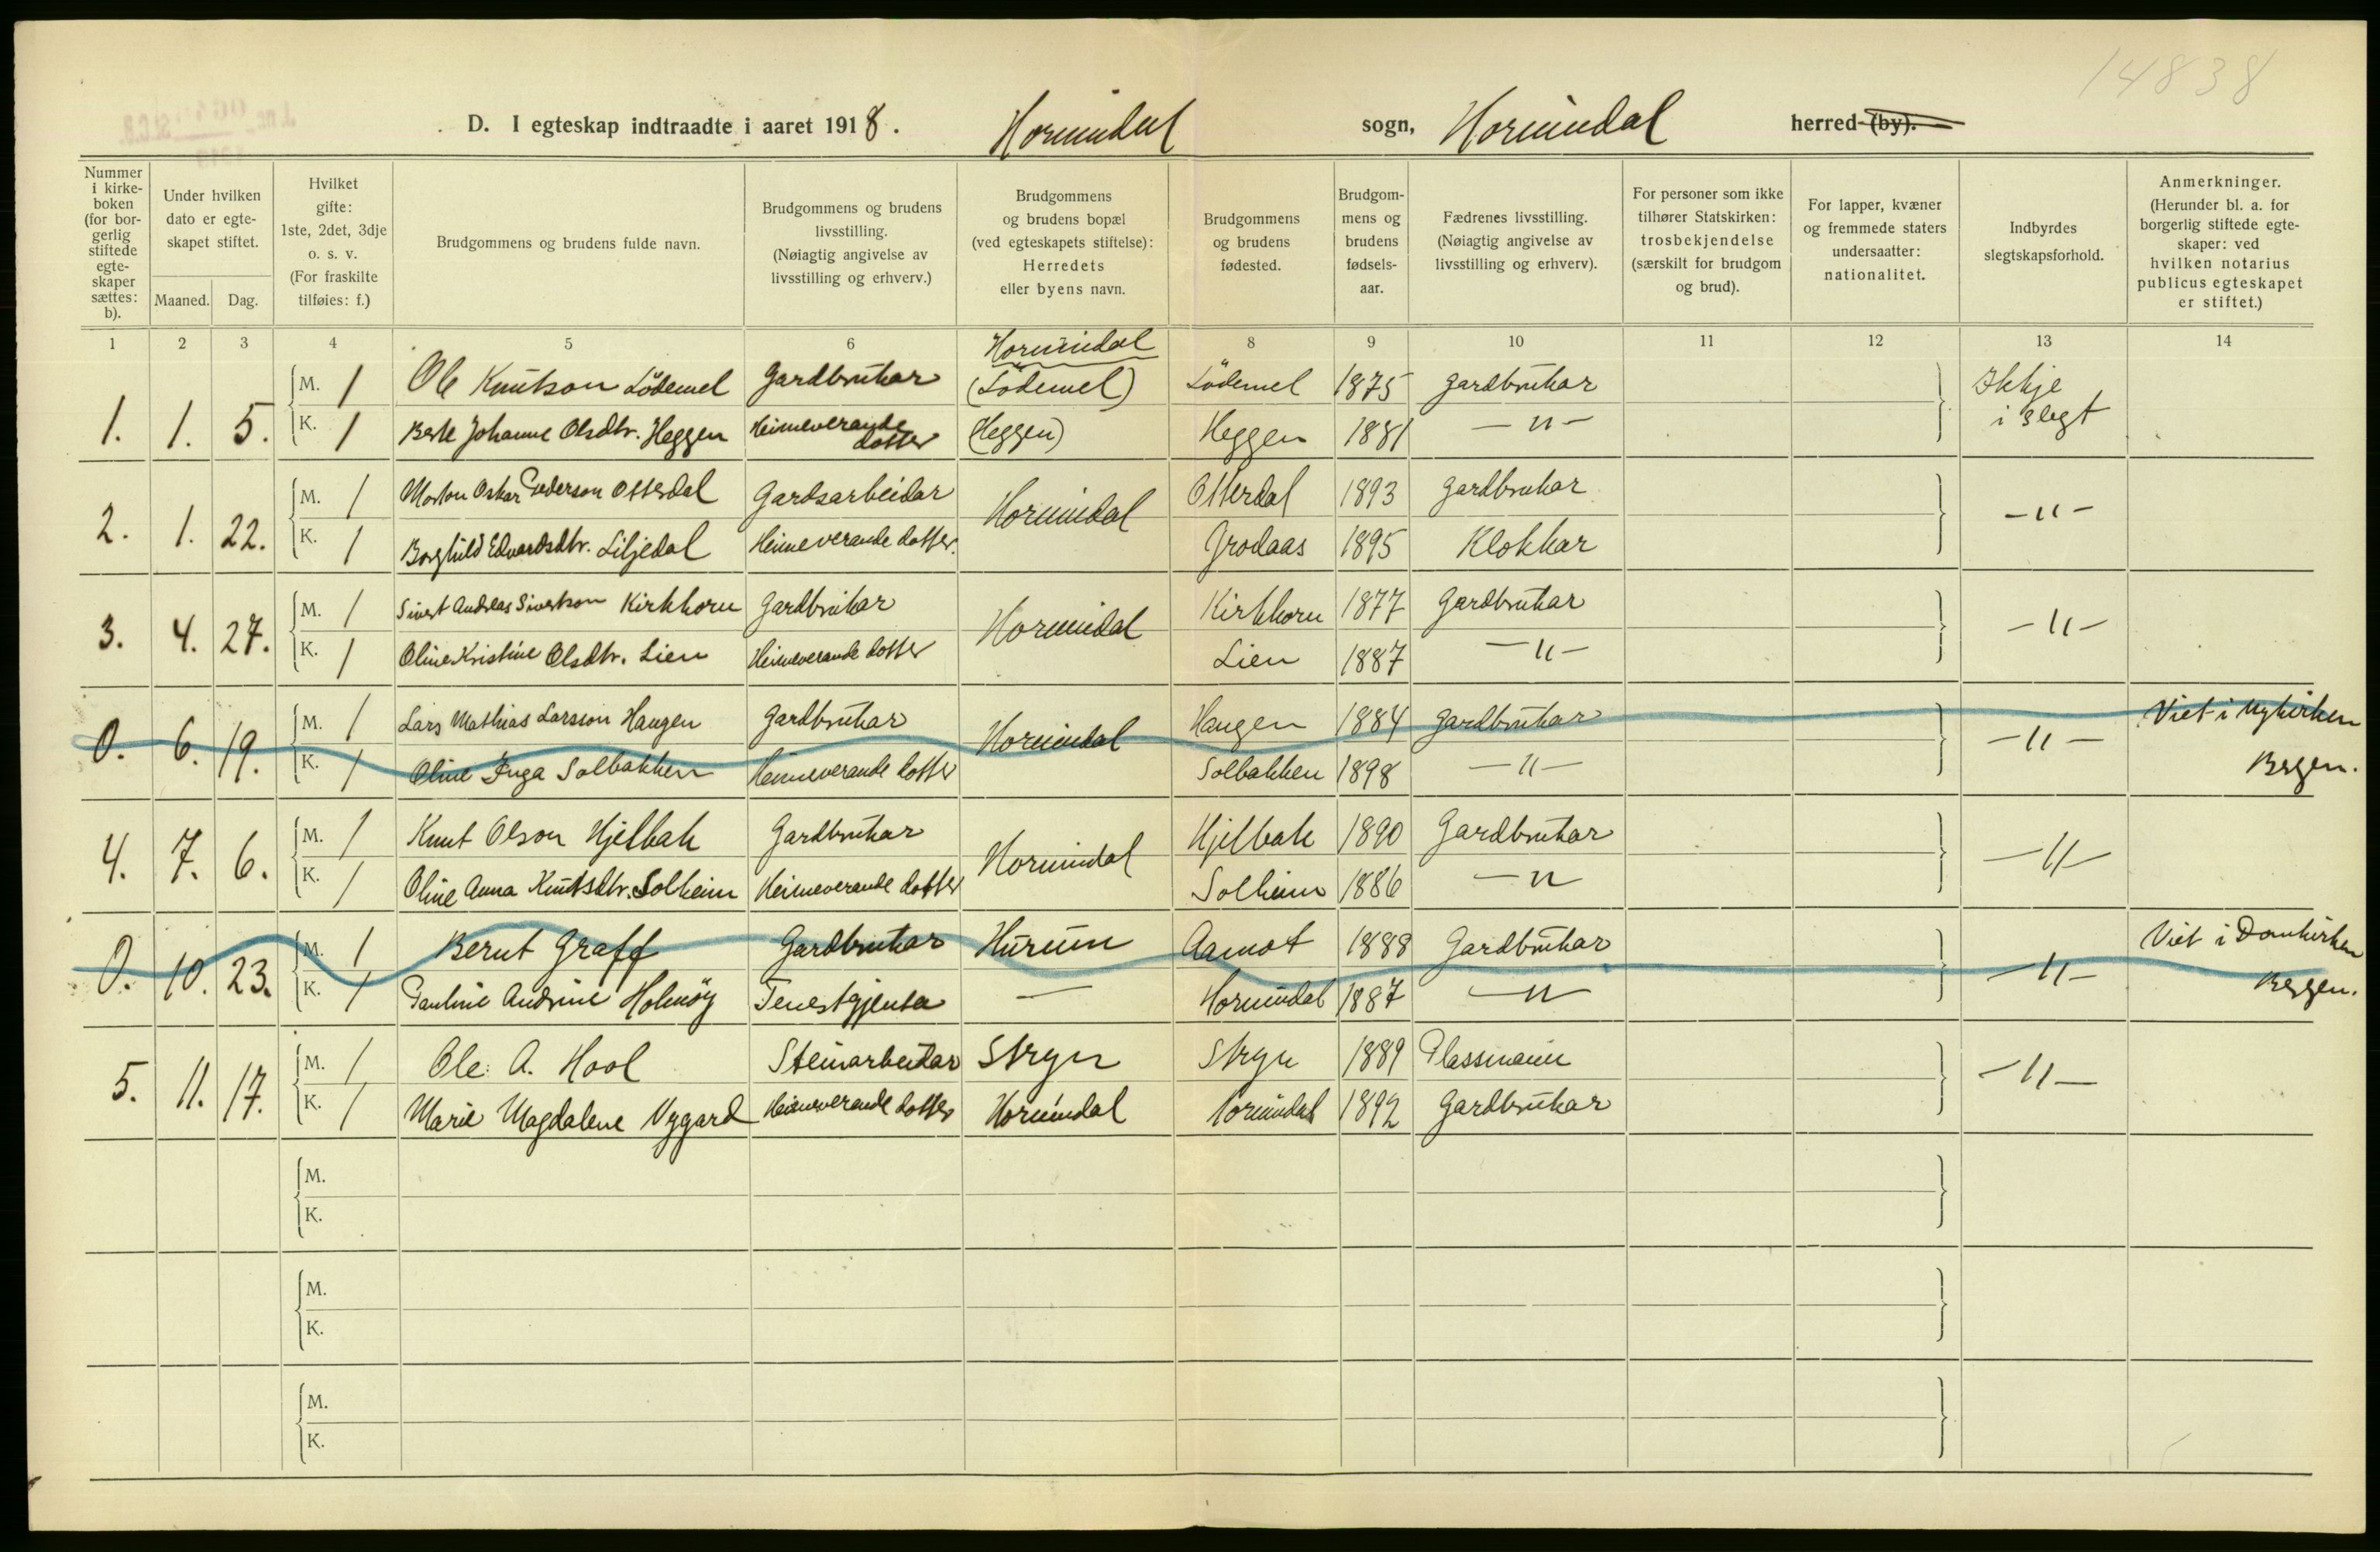 14838
D. I egteskap indtraadte i aaret 1918. Hornindal sogn, Hornindal herred (by).
Nummer i kirkeboken (for borgerlig stiftede egteskaper sættes: b).
Under hvilken dato er egteskapet stiftet.
Maaned. Dag.
Hvilket gifte: 1ste, 2det, 3dje o. s. v. (For fraskilte tilføies: f.)
Brudgommens og brudens fulde navn.
Brudgommens og brudens livsstilling. (Nøiagtig angivelse av livsstilling og erhverv.)
Brudgommens og brudens bopæl (ved egteskapets stiftelse): Herredets eller byens navn.
Brudgommens og brudens fødested.
Brudgommens og brudens fødselsaar.
Fædrenes livsstilling. (Nøiagtig angivelse av livsstilling og erhverv).
For personer som ikke tilhører Statskirken: trosbekjendelse (særskilt for brudgom og brud).
For lapper, kvæner og fremmede staters undersaatter: nationalitet.
Indbyrdes slegtskapsforhold.
Anmerkninger. (Herunder bl. a. for borgerlig stiftede egteskaper: ved hvilken notarius publicus egteskapet er stiftet.)
1 2 3 4 5 6 7 8 9 10 11 12 13 14
Hornindal
1. 1. 5. M. 1 Ole Knutson Lödemel Gardbrukar (Lödemel) Lödemel 1875 gardbrukar Ikkje i slegt
K. 1 Berte Johanne Olsdtr. Heggen Heimeverande dotter (Heggen) Heggen 1881 —"—
2. 1. 22. M. 1 Morten Oskar Pederson Otterdal Gardsarbeidar Hornindal Otterdal 1893 gardbrukar —"—
K. 1 Borghild Edvardsdtr. Liljedal Heimeverande dotter. Grodaas 1895 Klokkar
3. 4. 27. M. 1 Sivert Andreas Sivertson Kirkhorn Gardbrukar Hornindal Kirkhorn 1877 Gardbrukar —"—
K. 1 Oline Kristine Olsdtr. Lien Heimeverande dotter Lien 1887 —"—
0. 6. 19. M. 1 Lars Mathias Larsson Haugen Gardbrukar Hornindal Haugen 1884 gardbrukar —"— Viet i Nykirken Bergen.
K. 1 Oline Inga Solbakken Heimeverande dotter Solbakken 1898 —"—
4. 7. 6. M. 1 Knut Olson Hjelbak Gardbrukar Hornindal Hjelbak 1890 Gardbrukar —"—
K. 1 Oline Anna Knutsdtr. Solheim Heimeverande dotter Solheim 1886 —"
0. 10. 23. M. 1 Bernt Graff Gardbrukar Hurum Aamot 1888 Gardbrukar —"— Viet i Domkirken Bergen.
K. 1 Pauline Andrine Holmöy Tenestgjenta — Hornindal 1887 —"—
5. 11. 17. M. 1 Ole A. Hool Steinarbeidar Stryn Stryn 1889 Plassmann —"—
K. 1 Marie Magdalene Nygard Heimeverande dotter Hornindal Hornindal 1892 Gardbrukar
M.
K.
M.
K.
M.
K.